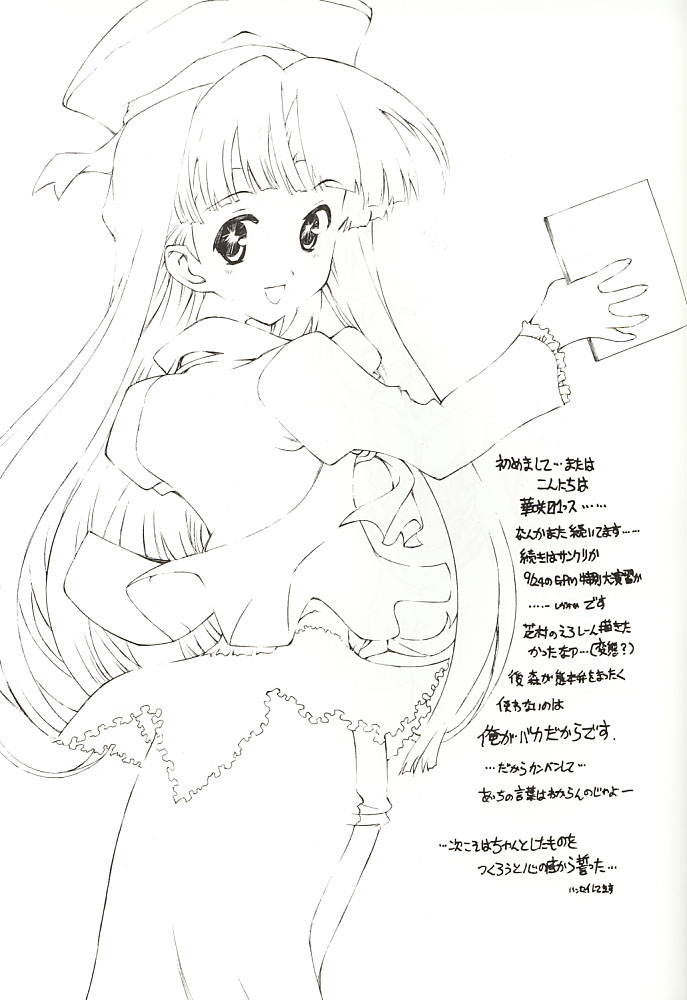 初めまして…または
こんにちは
華咲01っス……
なんかまた続いてます……
続きはサンクリか
9/24のGPM特別大演習か
……しかかも です
芝村のえろしーん描きた
かったなァ…(変態?)
後 森が熊本弁をまったく
使わないのは
俺がバカだからです.
…だからカンベンして…
あっちの言葉はわからんのじゃよー
…次こそはちゃんとしたものを
つくろうと心の底から誓った…
ハンセイしてます